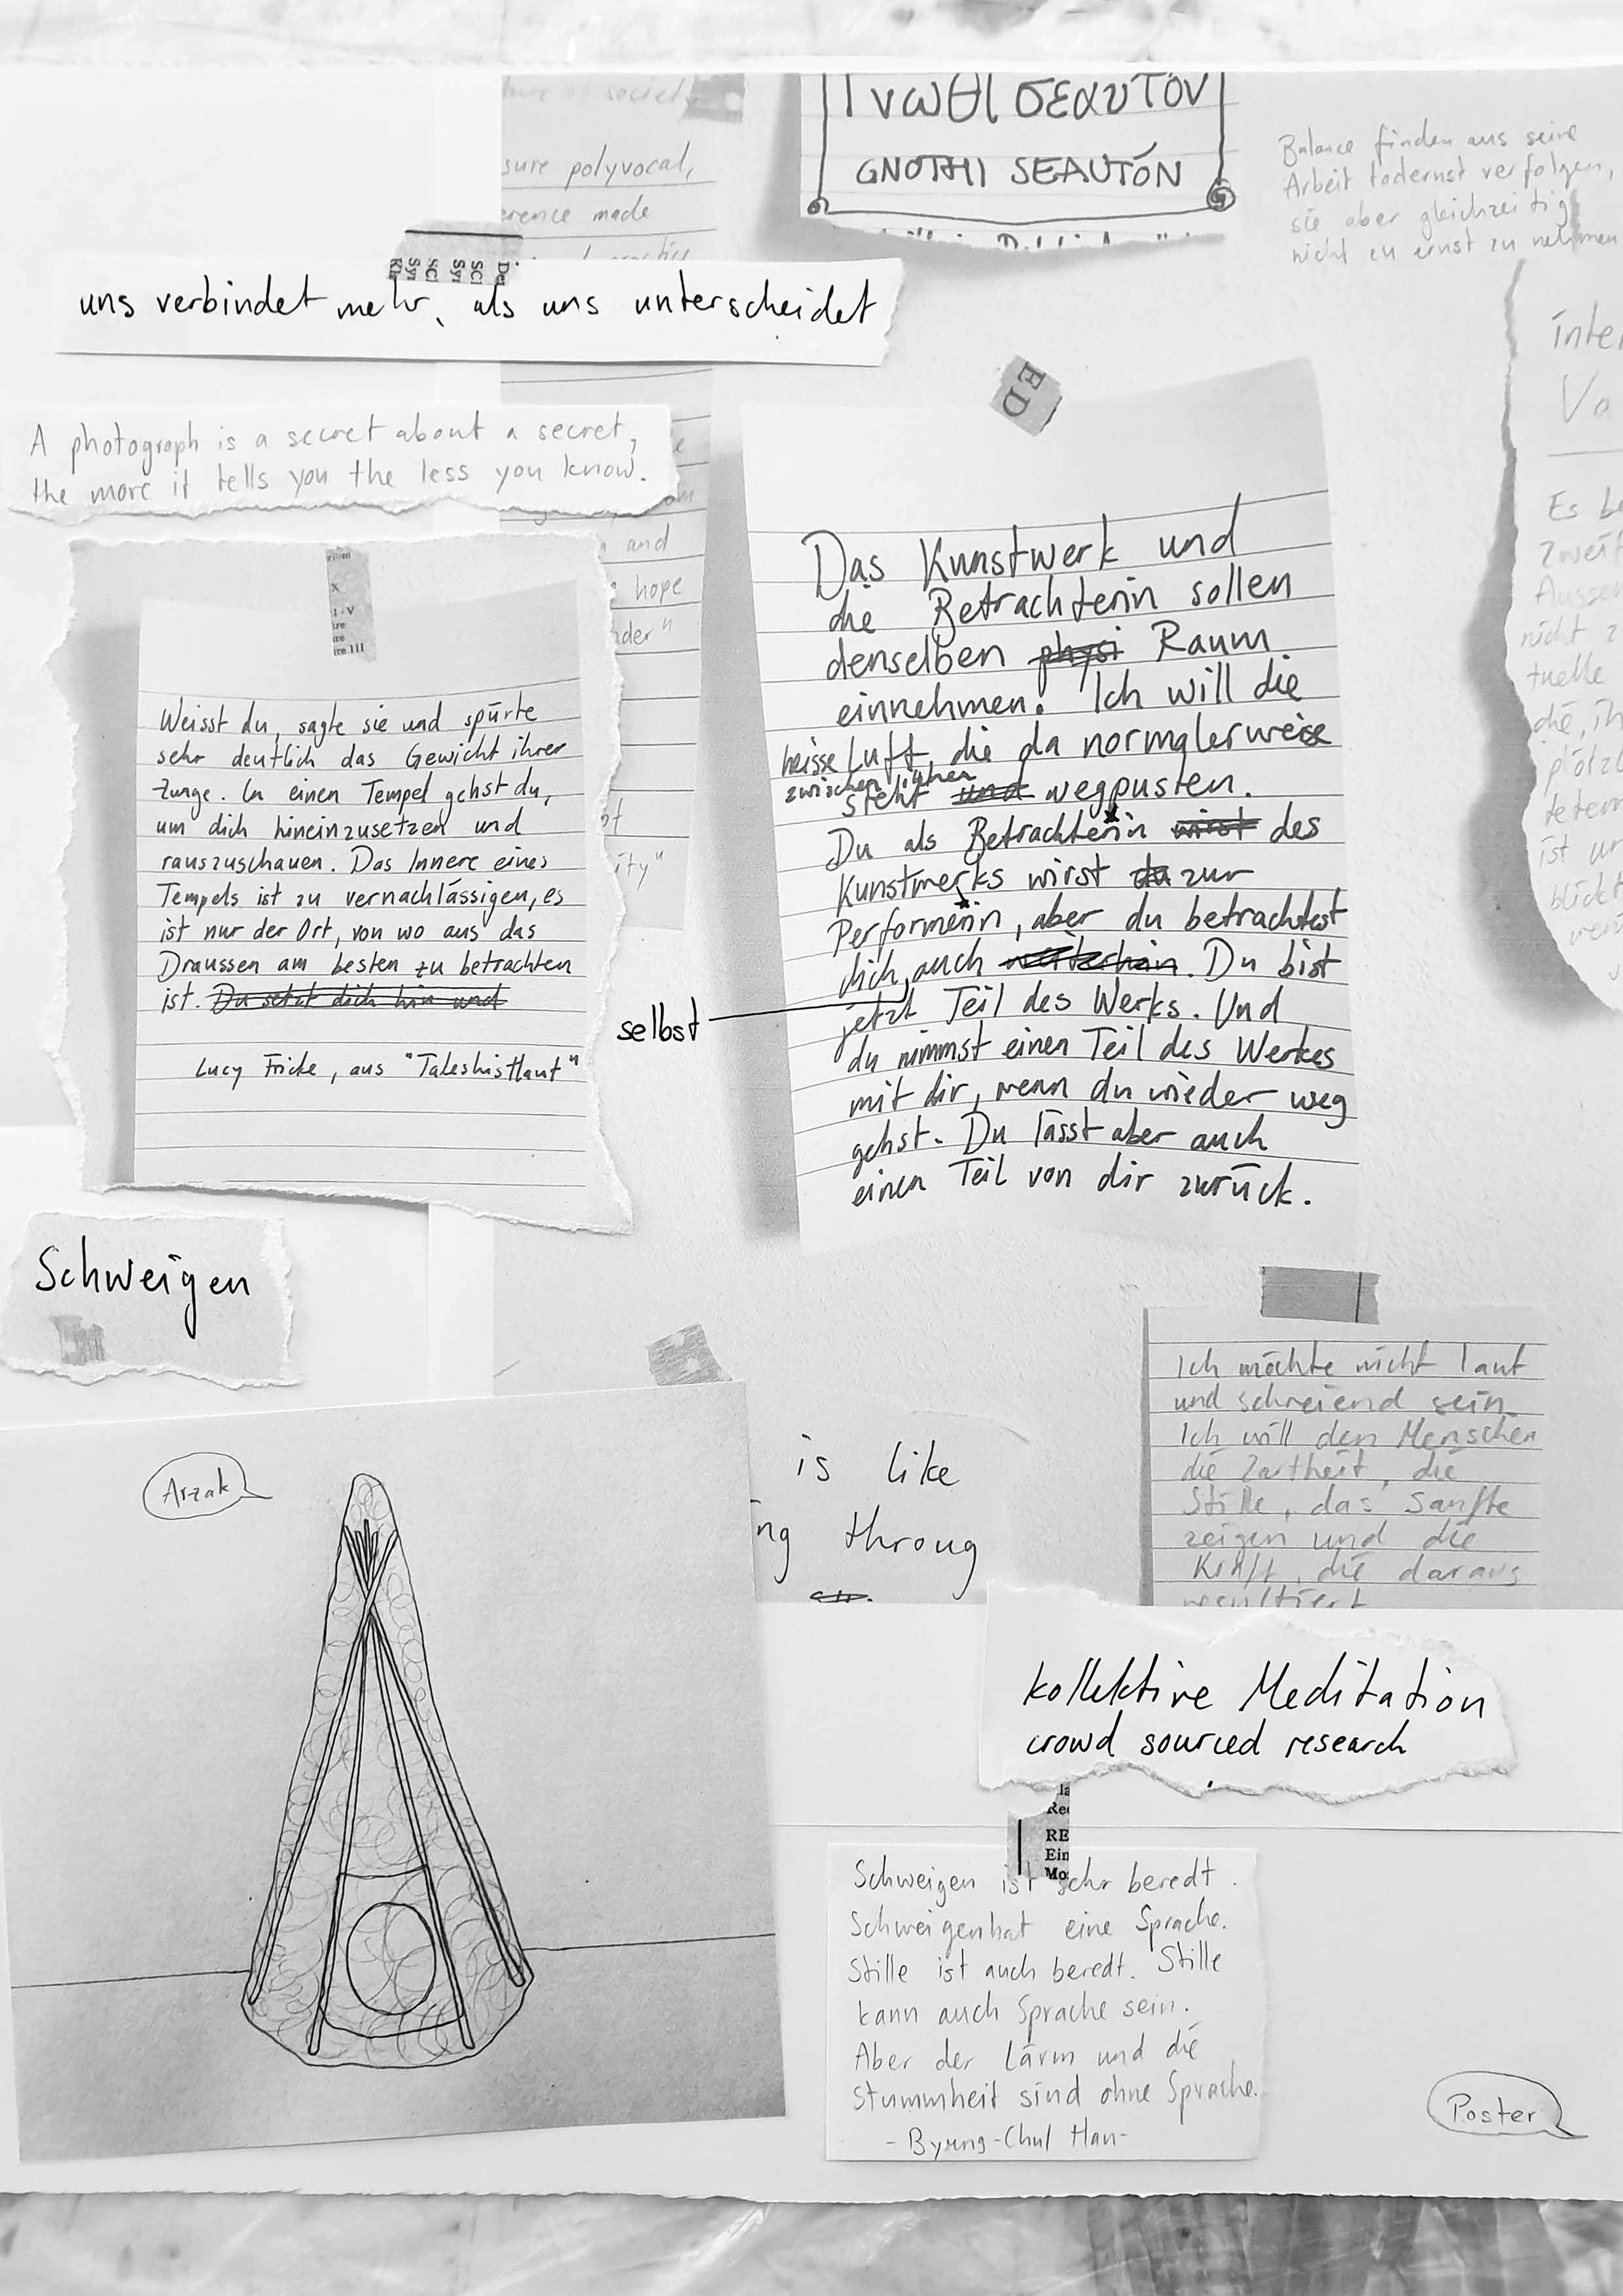 Γνωθι σεαυτόν
GNOTHI SEAUTÓN
Balance finden aus seine
Arbeit todernst verfolgen,
sie aber gleichzeitig
nicht zu ernst zu nehmen
society
sure polyvocal,
made
uns verbindet mehr, als uns unterscheidet
A photograph is a secret about a secret,
the more it tells you the less you know.
and
hope
ED
Weisst du, sagte sie und spürte
sehr deutlich das Gewicht ihrer
Zunge. In einen Tempel gehst du,
um dich hineinzusetzen und
rauszuschauen. Das Innere eines
Tempels ist zu vernachlässigen, es
ist nur der Ort, von wo aus das
Draussen am besten zu betrachten
ist. Du setzt dich hin und
Lucy Fricke, aus "Takeshis Haut"
Das Kunstwerk und
die Betrachterin sollen
denselben physi Raum
einnehmen. Ich will die
heisse Luft, die da normalerweise
zwischen ihnen
steht und wegpusten.
Du als Betrachter*in wirst des
Kunstwerks wirst da zur
Performer*in, aber du betrachtest
dich auch weiterhin. Du bist
selbst
jetzt Teil des Werks. Und
du nimmst einen Teil des Werkes
mit dir, wenn du wieder weg
gehst. Du lässt aber auch
einen Teil von dir zurück.
Es
nicht
ist
Schweigen
Arzak
is like
ng throug
Ich möchte nicht laut
und schreiend sein
Ich will den Menschen
die Zartheit, die
Stille, das Sanfte
zeigen und die
Kraft, die daraus
resultiert
kollektive Meditation
crowd sourced research
RE
Ein
Mo
Schweigen ist sehr beredt.
Schweigen hat eine Sprache.
Stille ist auch beredt. Stille
kann auch Sprache sein.
Aber der Lärm und die
Stummheit sind ohne Sprache.
- Byung-Chul Han -
Poster